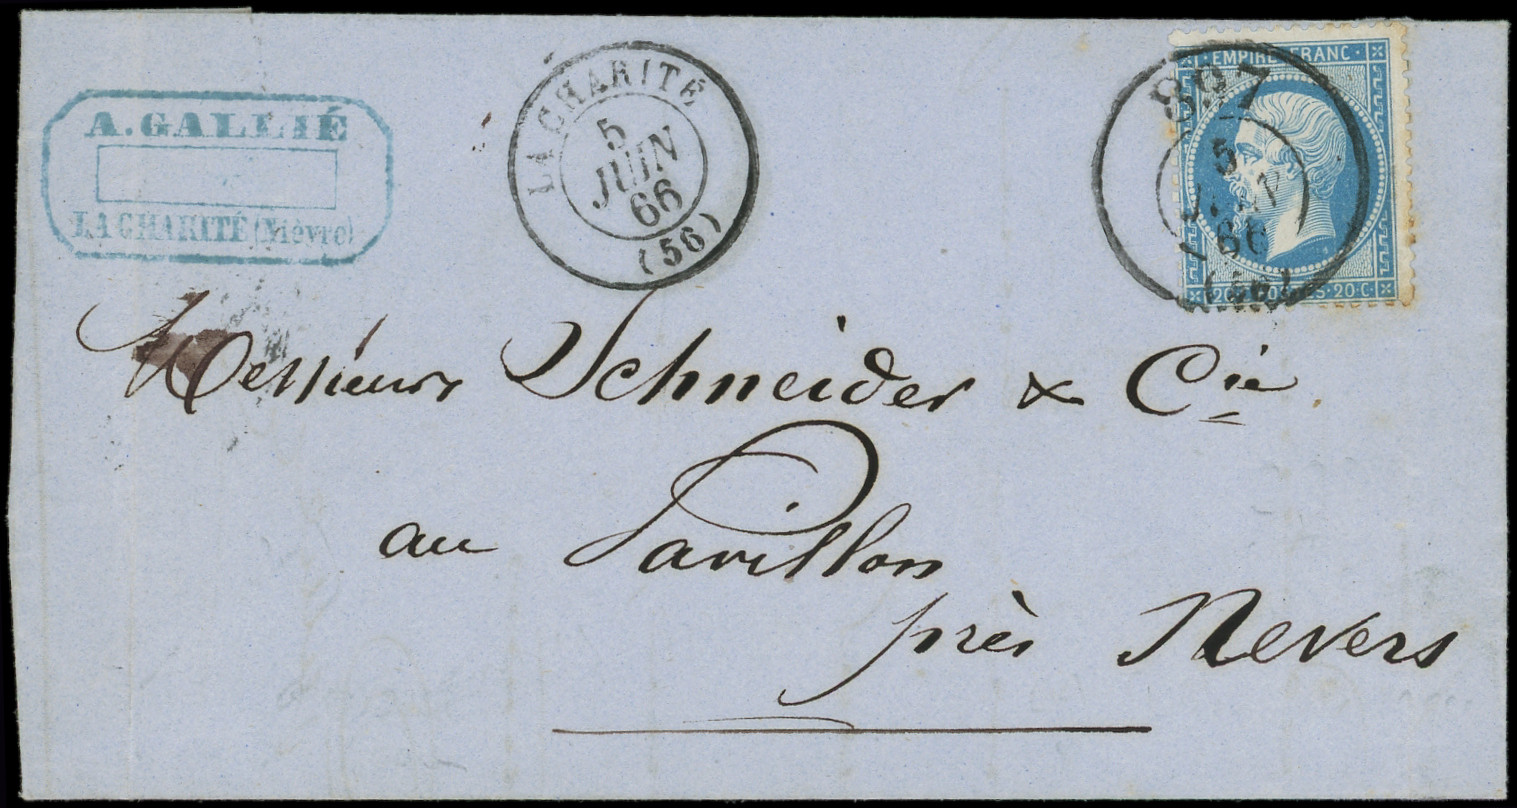 A. GALLIÉ
LA CHARITÉ (Nièvre)
LA CHARITÉ
5
JUIN
66
(56)
EMPIRE FRANC
897
5
66
20 C
Messieurs Schneider & Cie
au Pavillon
près Nevers